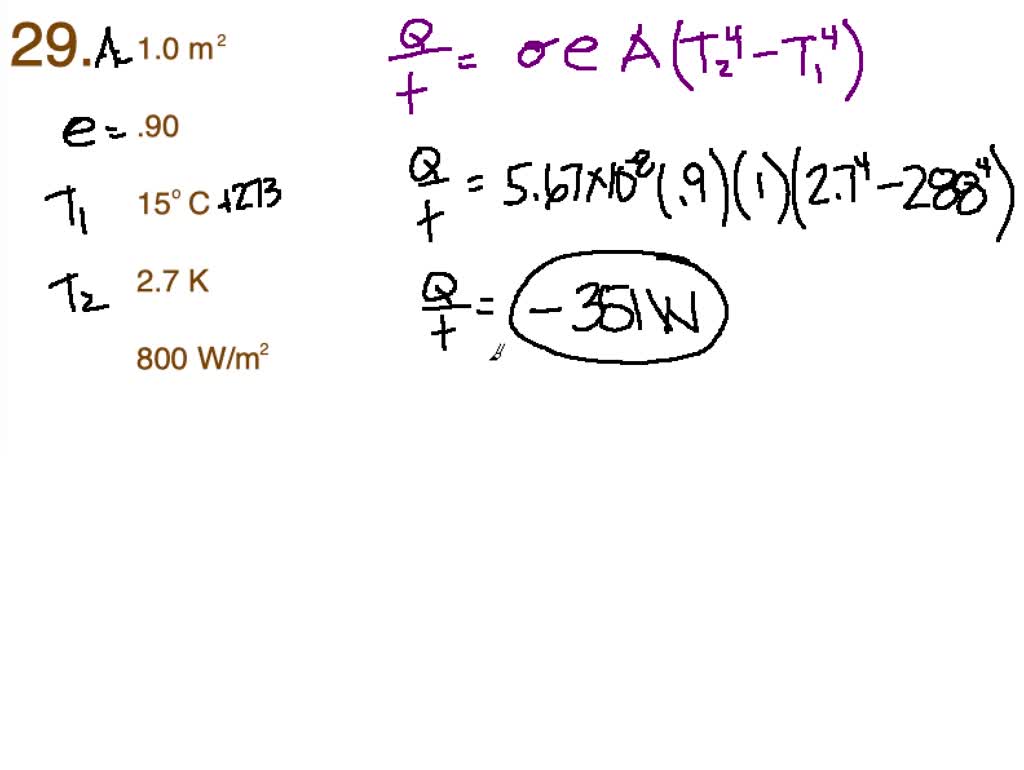 29. A 1.0 m²
e = .90
T₁ 15° C +273
T₂ 2.7 K
800 W/m²
Q/t = σ e A (T₂⁴ - T₁⁴)
Q/t = 5.67×10⁻⁸ (.9)(1)(2.7⁴ - 288⁴)
Q/t = - 351 W